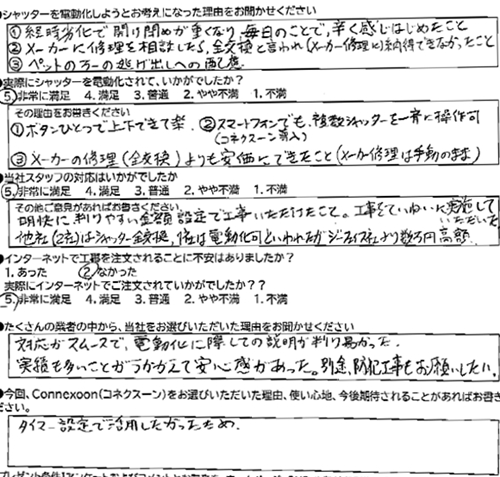 ●シャッターを電動化しようとお考えになった理由をお聞かせください
①経時劣化で開け閉めが重くなり、毎日のことで、辛く感じはじめたこと
②メーカーに修理を相談したら、全交換と言われ(メーカー修理に)納得できなかったこと
③ペットのカラーの逃げ出しへの配慮
●実際にシャッターを電動化されて、いかがでしたか?
5.非常に満足 4.満足 3.普通 2.やや不満 1.不満
その理由をお書きください
①ボタンひとつで上下できて楽. ②スマートフォンでも、複数シャッターを一斉に操作可
(コネクスーン導入)
③メーカーの修理(全交換)よりも安価にできたこと(メーカー修理は手動のまま)
●当社スタッフの対応はいかがでしたか
5.非常に満足 4.満足 3.普通 2.やや不満 1.不満
その他ご意見があればお書きください
明快に判りやすい金額設定で工事いただけたこと。工事をていねいに実施していただいた
他社(2社)はシャッター全交換, 1社は電動化可といわれたが ジーエイス社より数万円高額.
●インターネットで工事を注文されることに不安はありましたか?
1.あった ②なかった
実際にインターネットでご注文されていかがでしたか??
5.非常に満足 4.満足 3.普通 2.やや不満 1.不満
●たくさんの業者の中から、当社をお選びいただいた理由をお聞かせください
対応がスムーズで、電動化に際しての説明が判り易かった.
実績も多いことがうかがえて安心感があった。別途、防犯工事もお願いしたい。
●今回、Connexoon(コネクスーン)をお選びいただいた理由、使い心地、今後期待されることがあればお書き
ださい。
タイマー設定で活用したかったため.